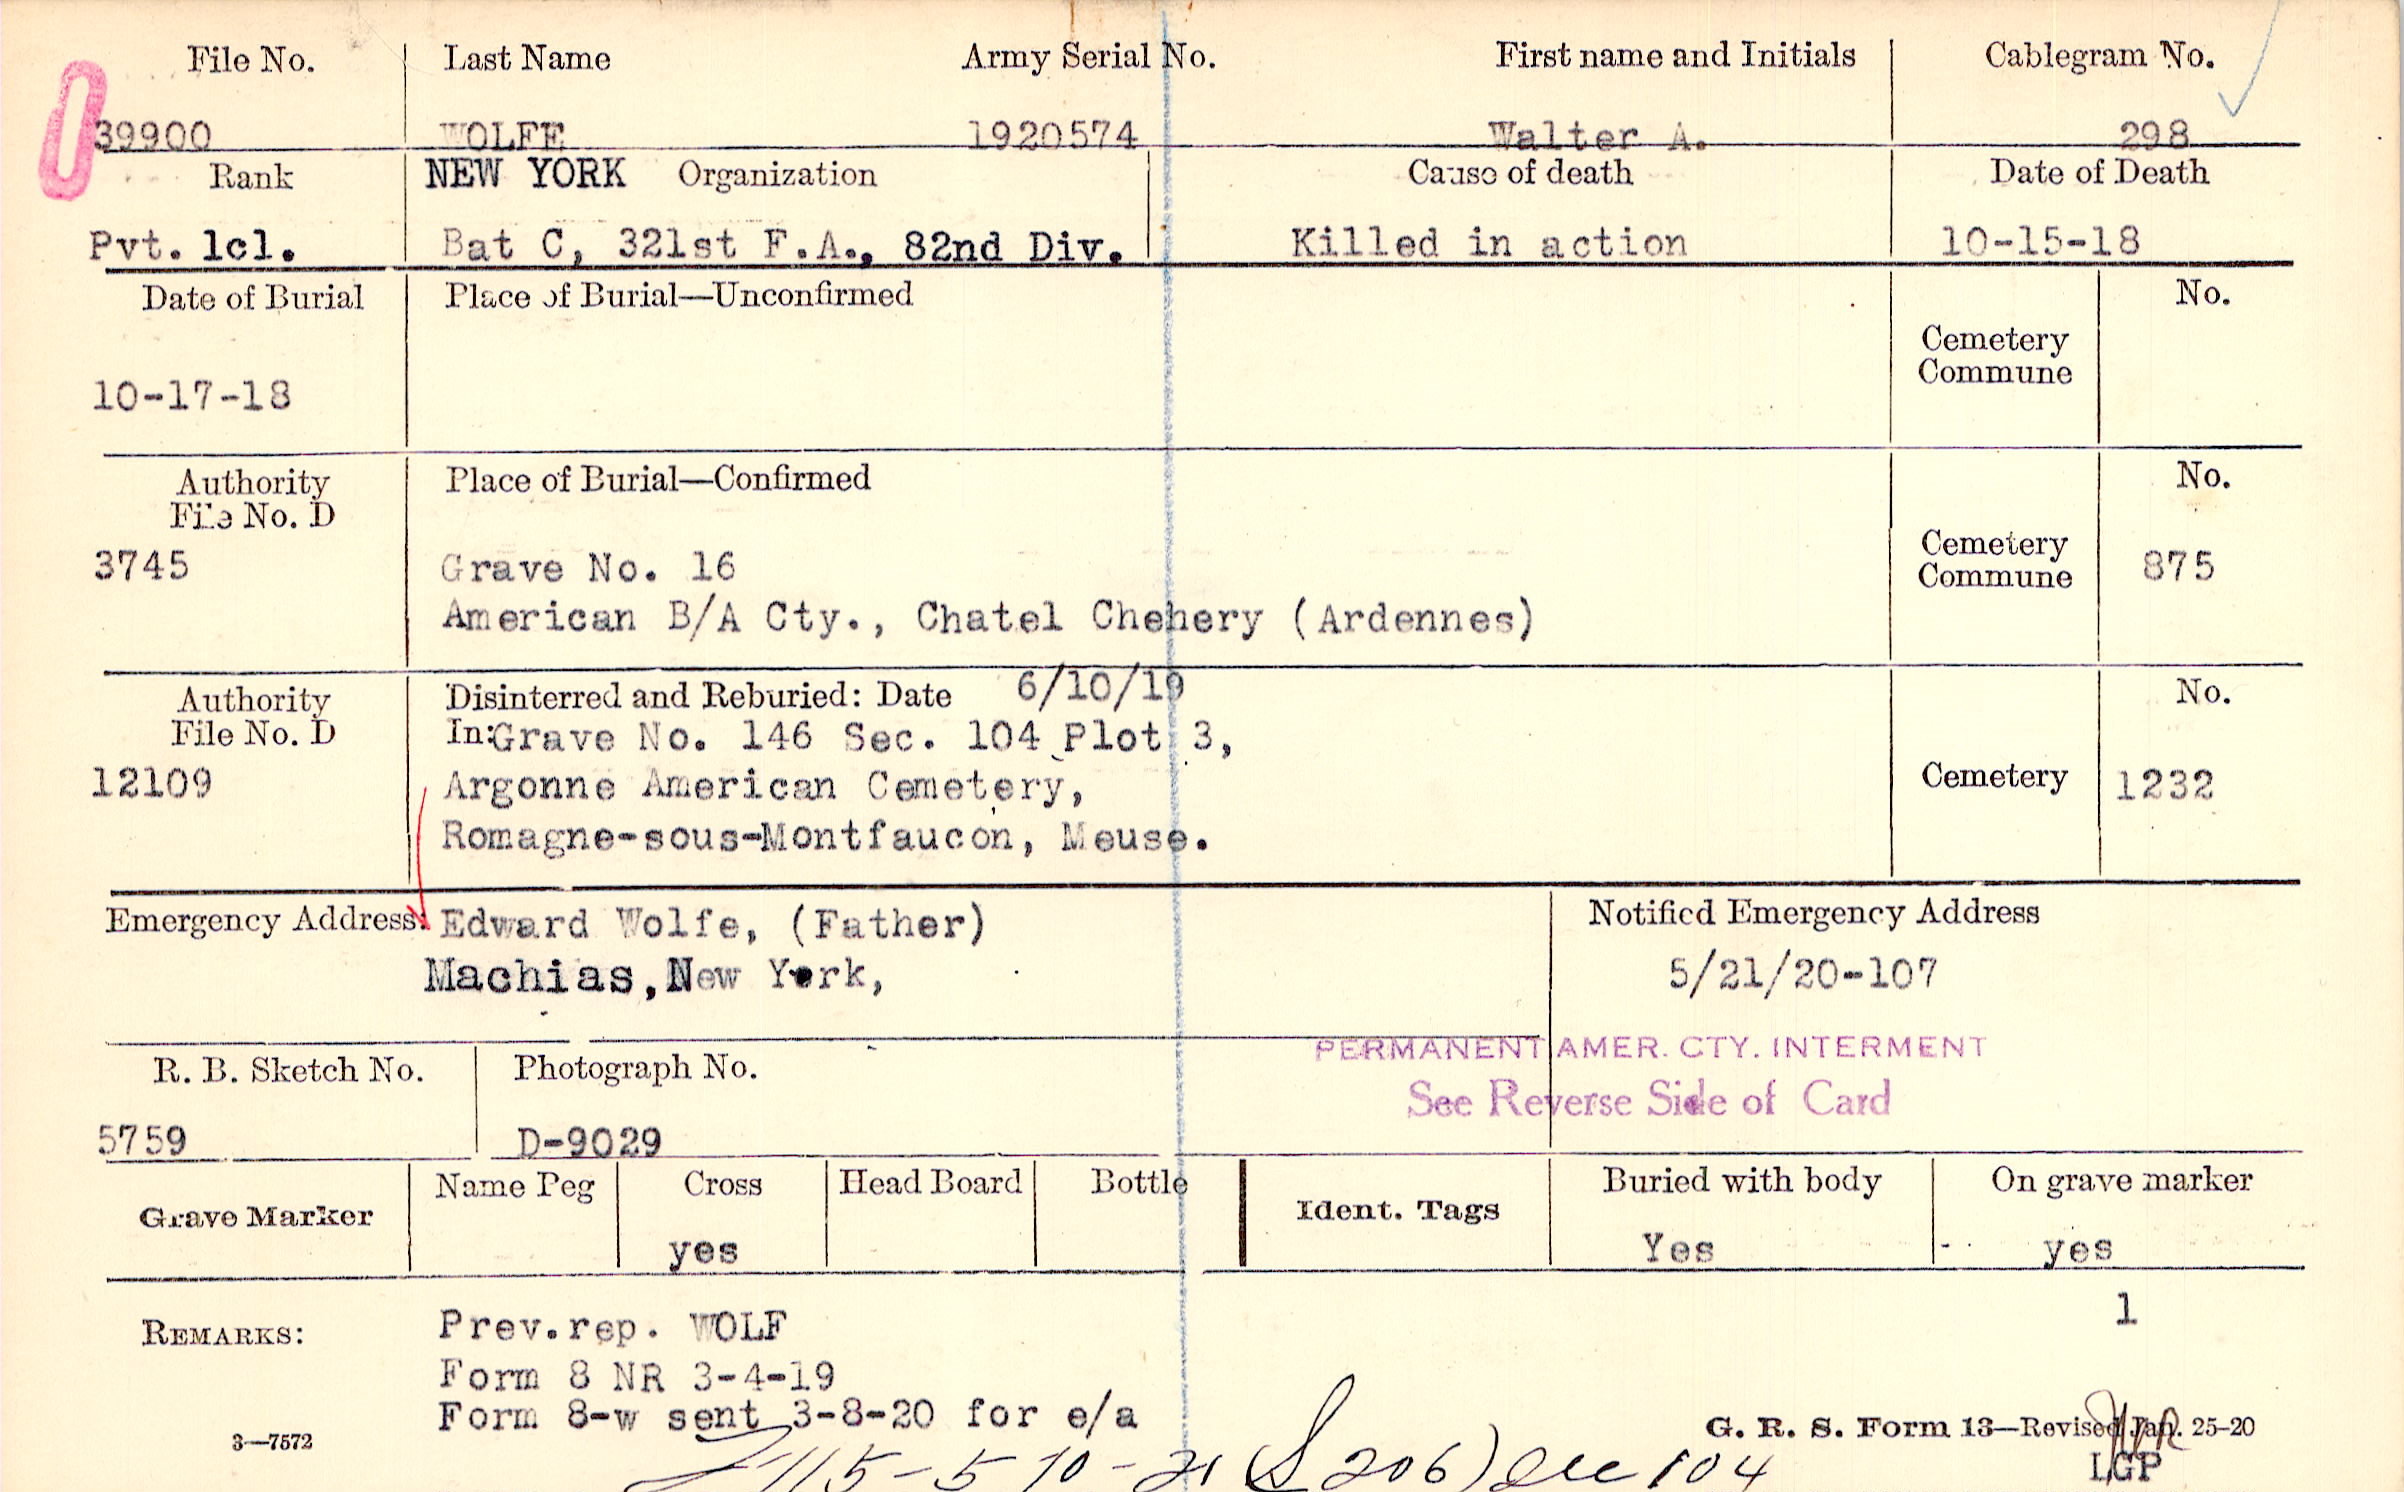 File No. Last Name Army Serial No. First name and Initials Cablegram No.
39900 WOLFE 1920574 Walter A. 298
Rank NEW YORK Organization Cause of death Date of Death
Pvt. lcl. Bat C, 321st F.A., 82nd Div. Killed in action 10-15-18
Date of Burial Place of Burial—Unconfirmed No.
Cemetery
Commune
10-17-18
Authority Place of Burial—Confirmed No.
File No. D
Cemetery
3745 Grave No. 16 Commune 875
American B/A Cty., Chatel Chehery (Ardennes)
Authority Disinterred and Reburied: Date 6/10/19 No.
File No. D In: Grave No. 146 Sec. 104 Plot 3,
12109 Argonne American Cemetery, Cemetery 1232
Romagne-sous-Montfaucon, Meuse.
Emergency Address: Edward Wolfe, (Father) Notified Emergency Address
Machias, New York, 5/21/20-107
PERMANENT AMER. CTY. INTERMENT
R. B. Sketch No. Photograph No. See Reverse Side of Card
5759 D-9029
Name Peg Cross Head Board Bottle Buried with body On grave marker
Grave Marker Ident. Tags
yes Yes yes
1
REMARKS: Prev.rep. WOLF
Form 8 NR 3-4-19
Form 8-w sent 3-8-20 for e/a
3—7572 G. R. S. Form 13—Revised Jan. 25-20
5-10-21 (S 206) Sec 104 LGP